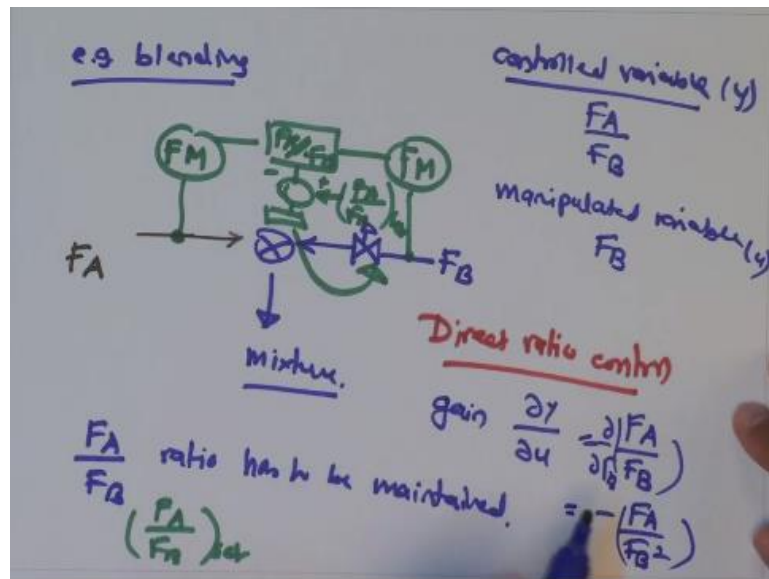 e.g blending
controlled variable (y)
FA
FB
manipulated variable (u)
FB
FM
FA/FB
FM
-
+
(FA/FB)set
FA
FB
mixture.
Direct ratio control
gain ∂y/∂u = ∂/∂FB (FA/FB)
= - (FA/FB²)
FA/FB ratio has to be maintained.
(FA/FB)set